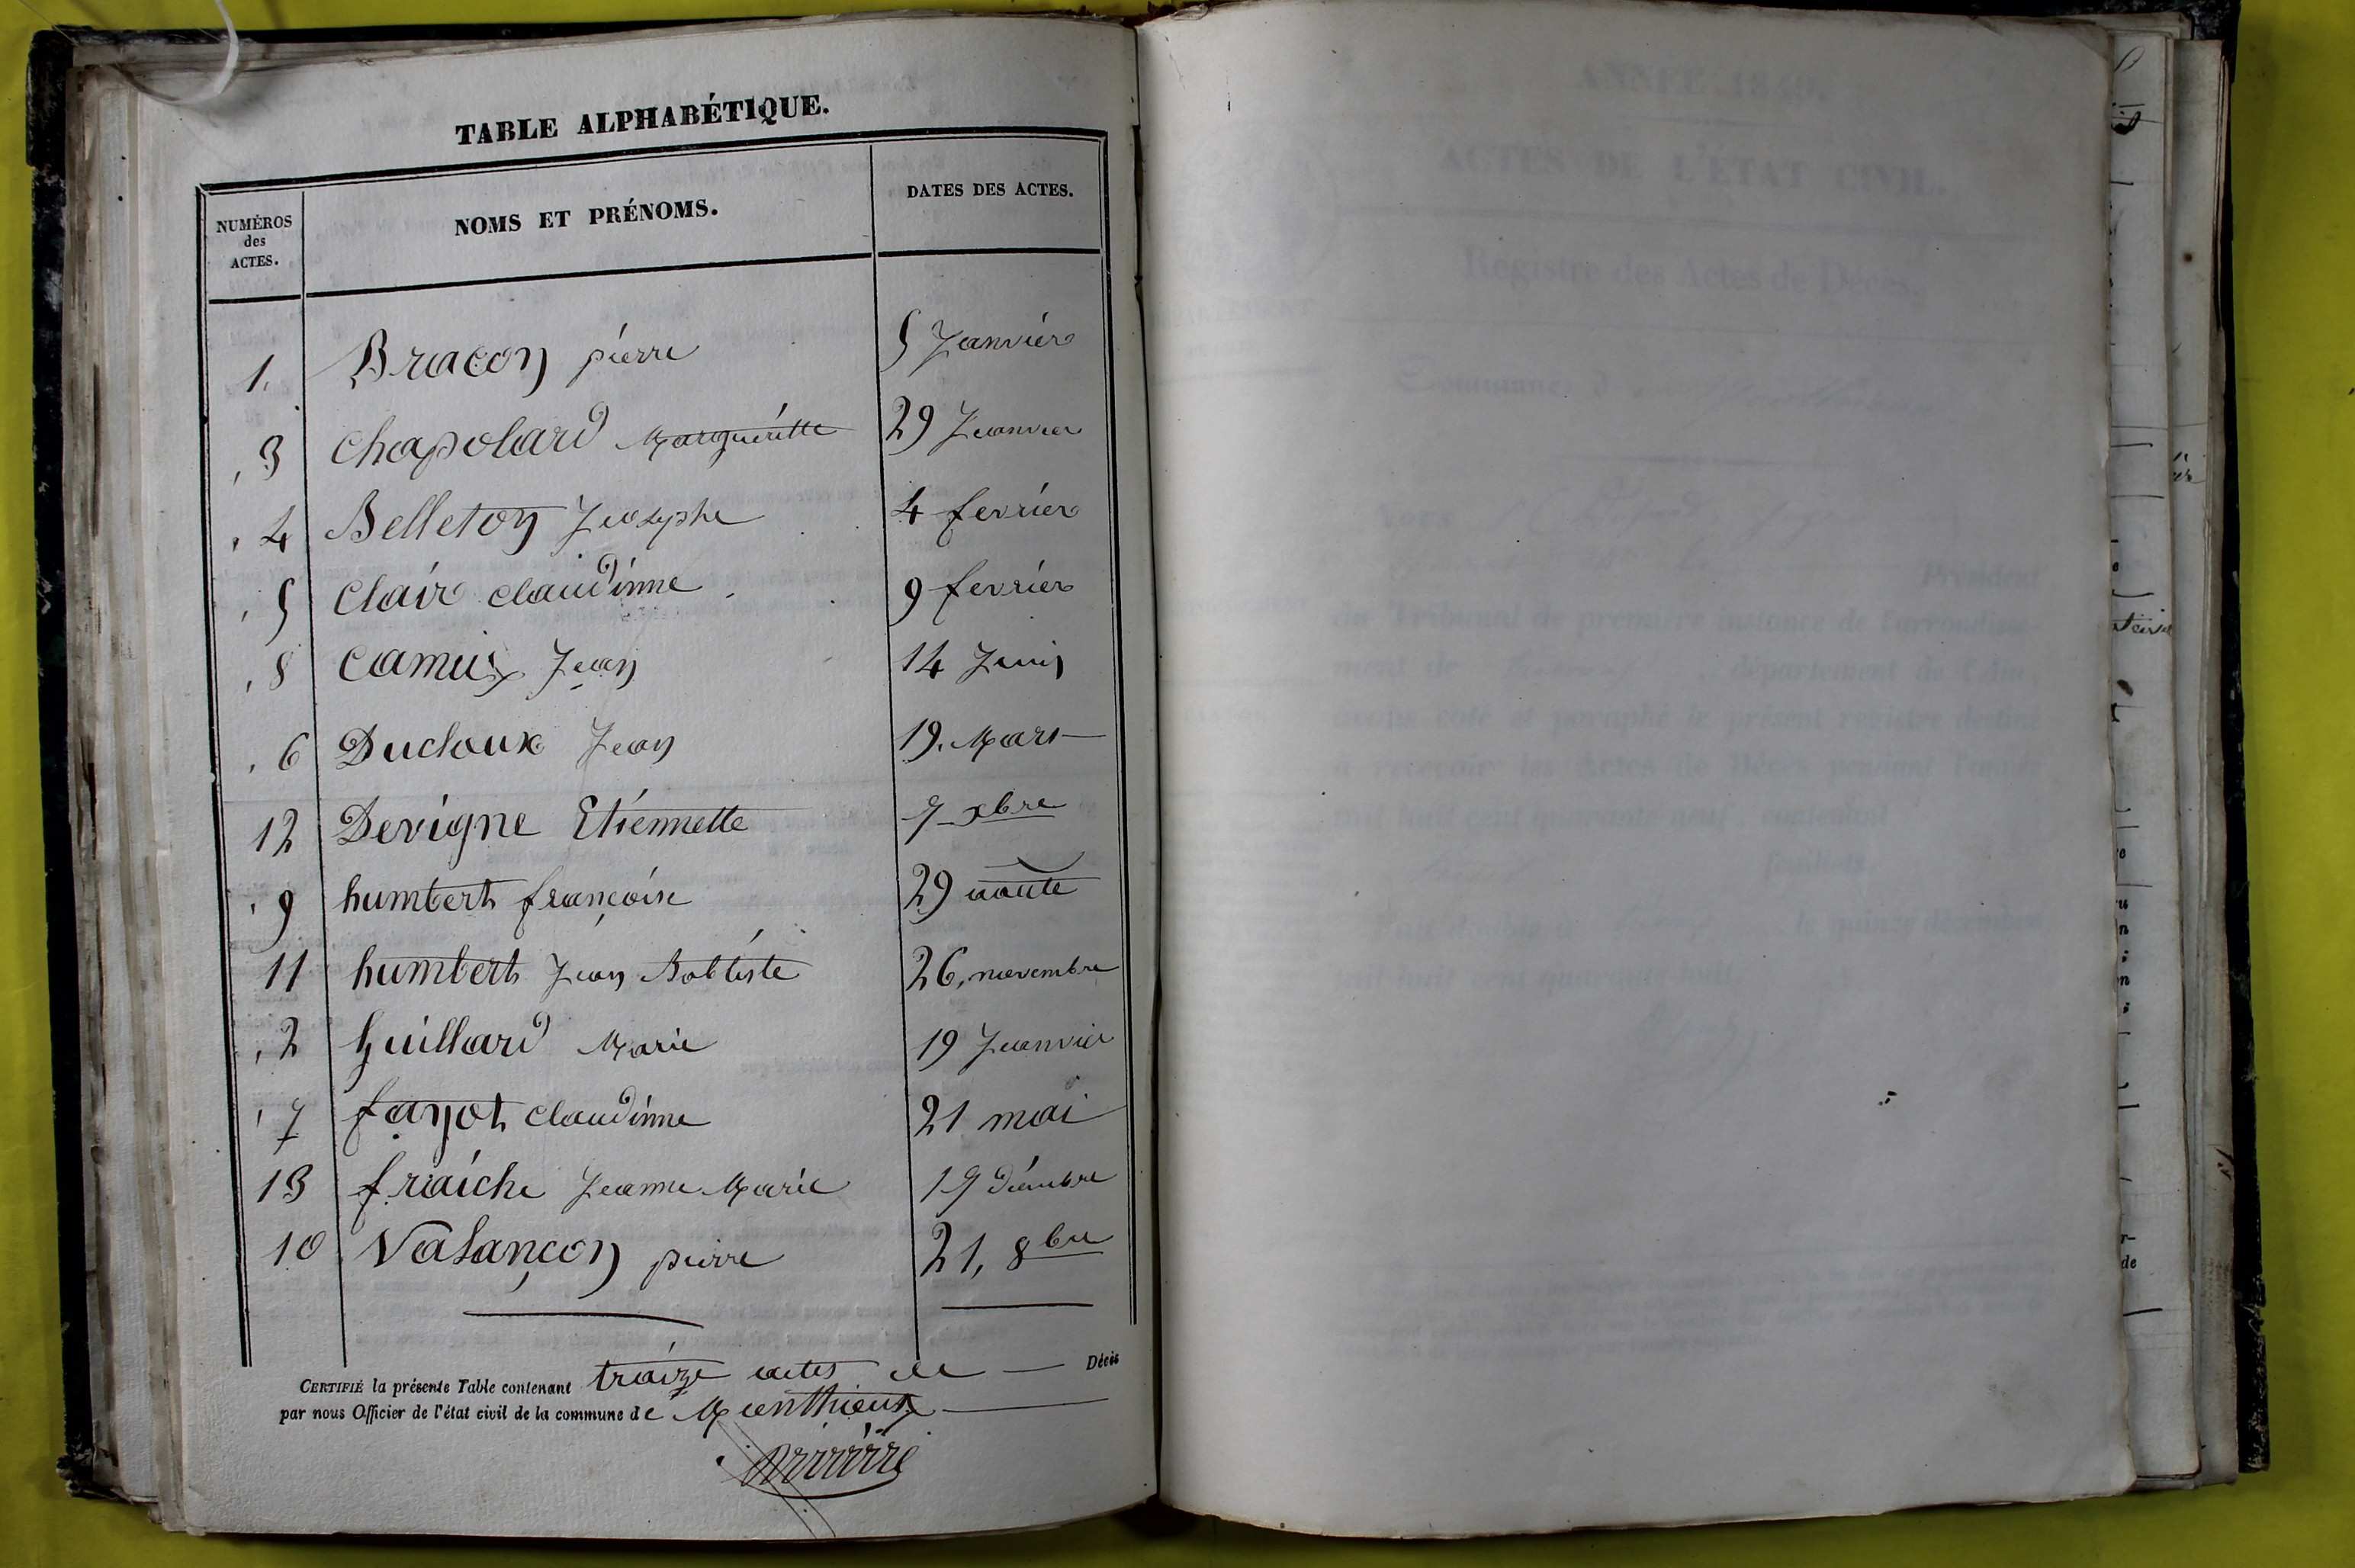 TABLE ALPHABÉTIQUE.
NUMÉROS des ACTES. NOMS ET PRÉNOMS. DATES DES ACTES.
1. Bracon pierre 5 Janvier
3 Chapolard Marguéritte 29 Janvier
4 Belleton Josephe 4 fevrier
5 Clair claudinne 9 fevrier
8 Camus Jean 14 Juin
6 Ducloux Jean 19. Mars
12 Devigne Etiennette 9 xbre
9 humbert françoise 29 aoute
11 humbert Jean Babtiste 26, novembre
2 Guillard Marie 19 Janvier
7 fayot claudinne 21 mai
13 fraiche Jeanne Marie 19 Décembre
10 Valançon pierre 21, 8bre
CERTIFIÉ la présente Table contenant traize actes de Décès
par nous Officier de l'état civil de la commune de Monthieux
ANNÉE 1849.
ACTES DE L'ÉTAT CIVIL.
Registre des Actes de Décès.
Commune d
Président
du Tribunal de première instance de l'arrondisse-
ment de département de l'Ain,
avons coté et paraphé le présent registre destiné
à recevoir les Actes de Décès pendant l'année
mil huit cent quarante neuf, contenant
feuillets.
le quinze décembre
mil huit cent quarante-huit.